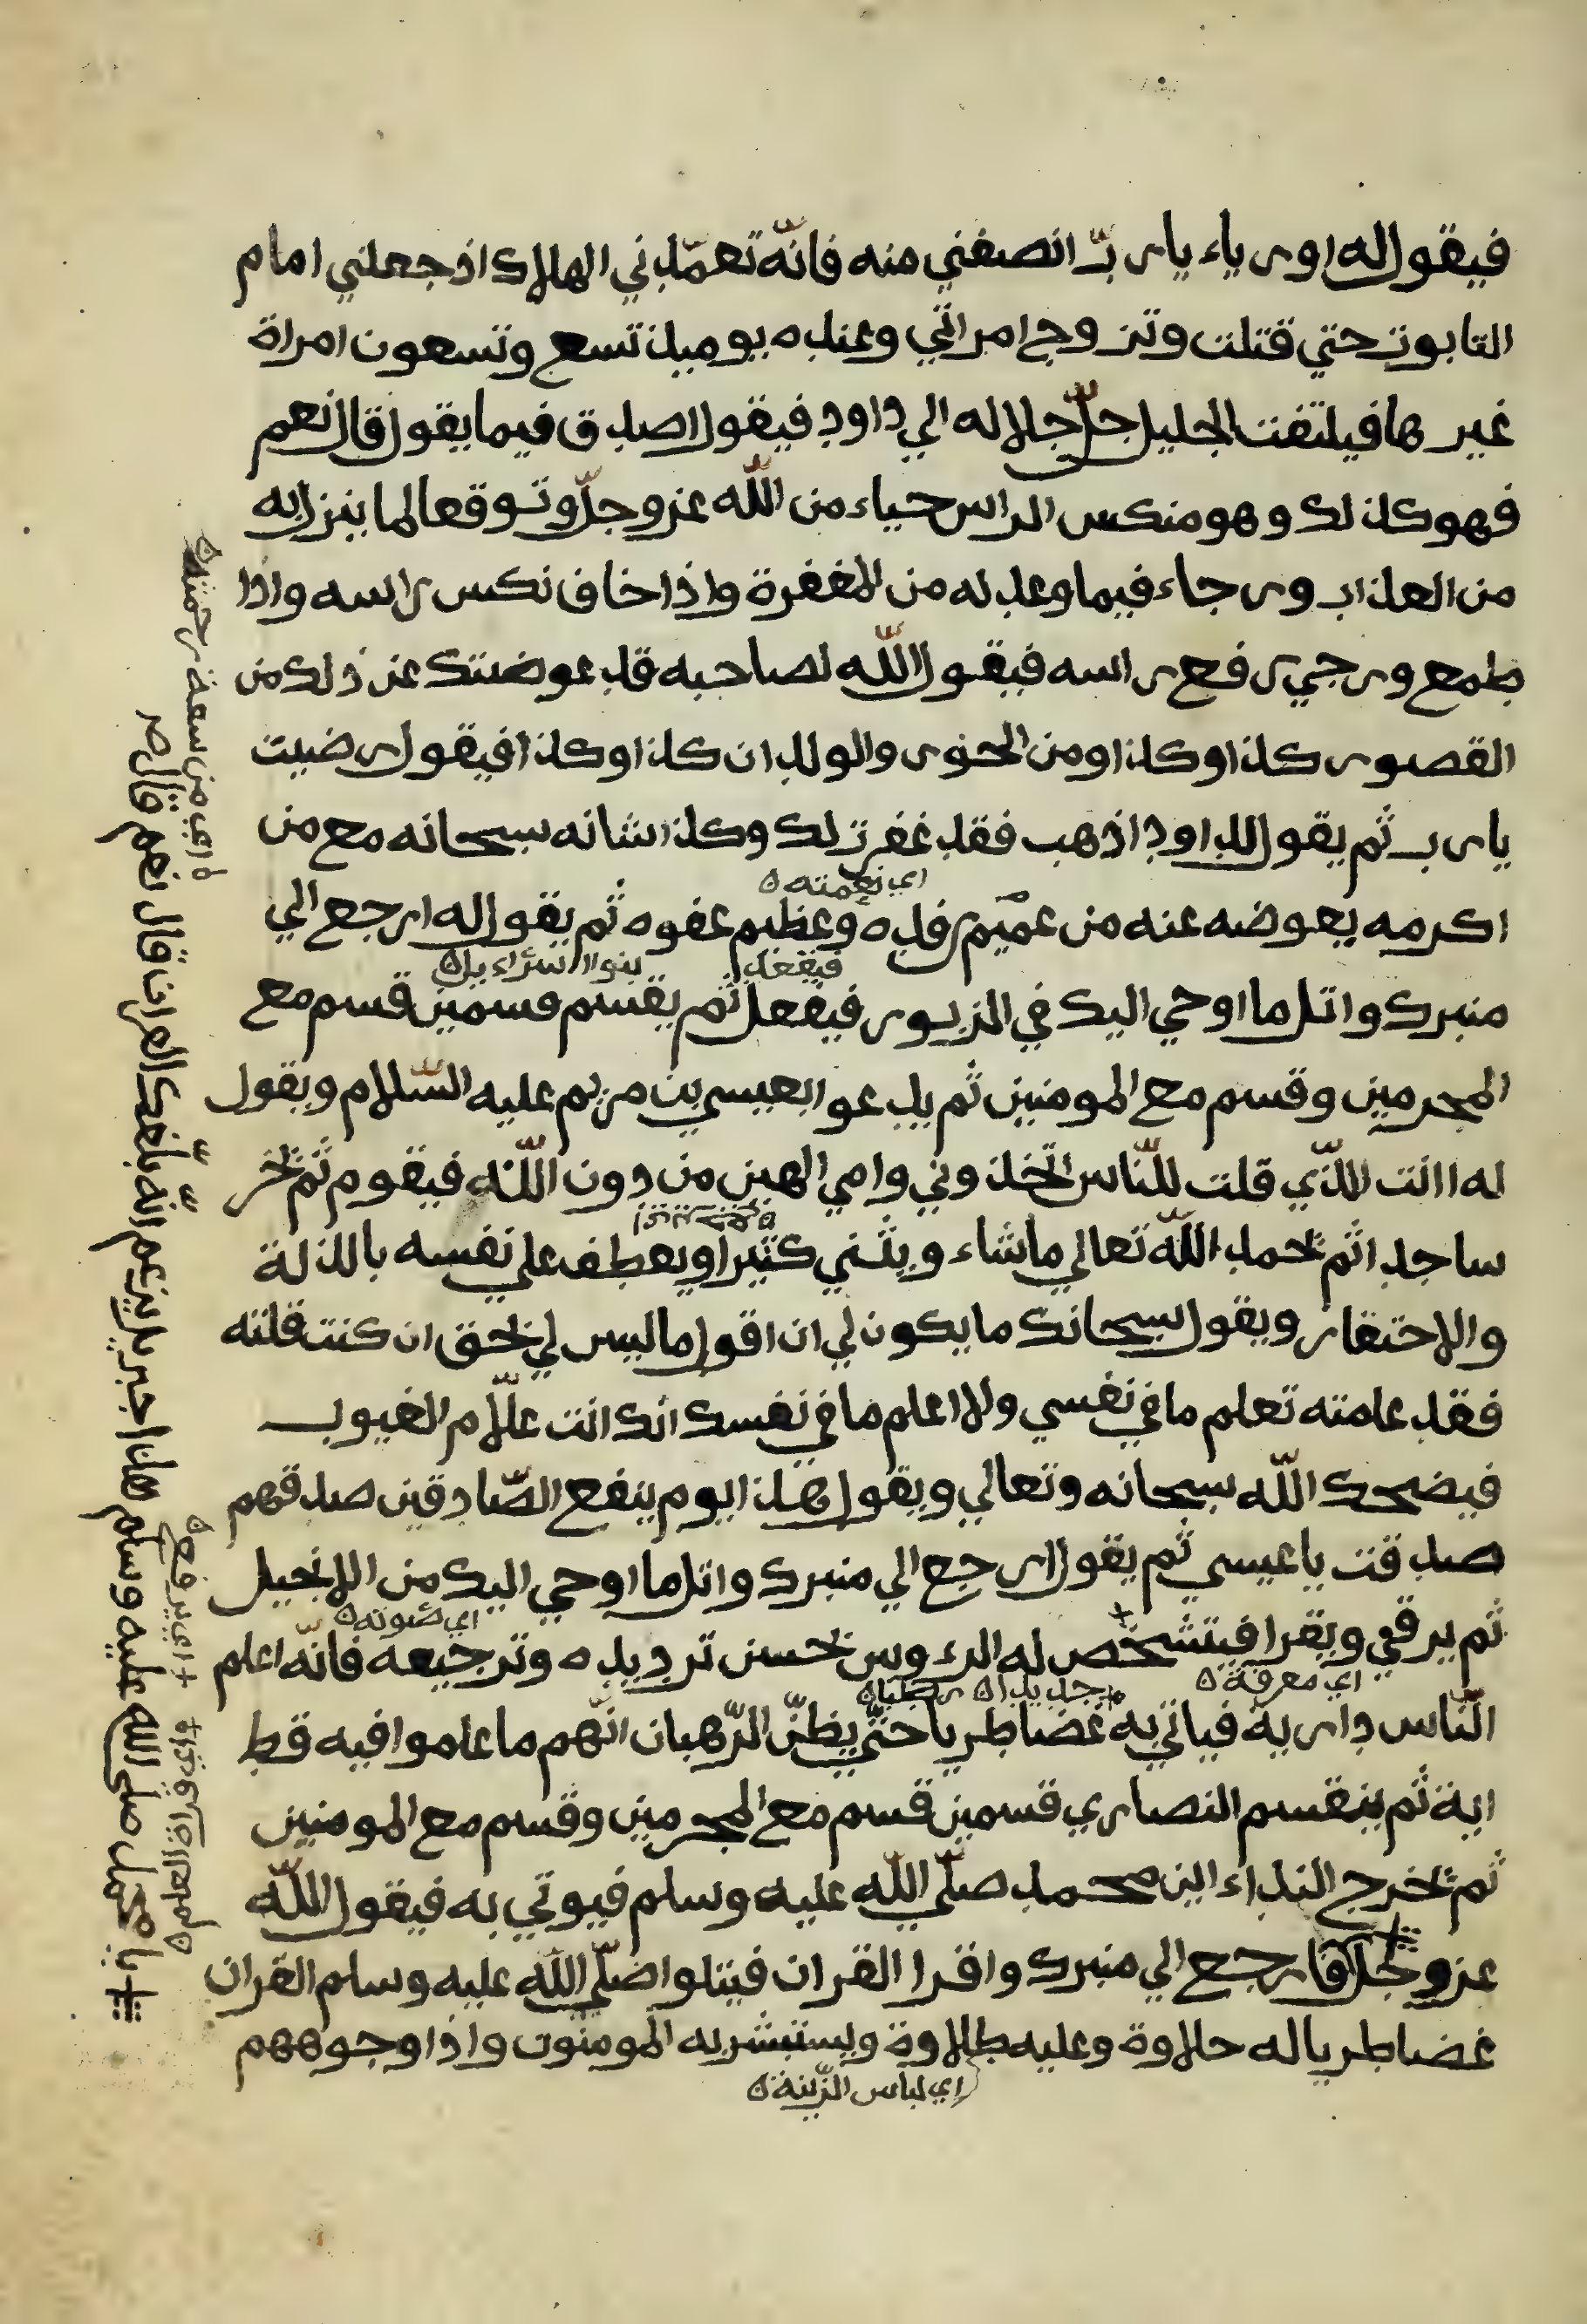 فيقول له اورياء يارب انصفني منه فانّه تعمّدني الهلاك اذ جعلني امام
التابوت حتي قتلت وتزوج امراتي وعنده يوميذ تسع وتسعون امراة
غيرها فيلتفت الجليل جلّ جلاله الي داود فيقول اصدق فيما يقول قال نعم
فهو كذلك وهو منكس الراس حياء من اللّه عزوجلّ وتوقعا لما ينزل به
من العذاب ورجاء فيما وعد له من المغفرة واذا خاف نكس راسه واذا
طمع ورجي رفع راسه فيقول اللّه لصاحبه قد عوضتك عن ذلك من
القصور كذا وكذا ومن الحور والولدان كذا وكذا فيقول رضيت
يارب ثم يقول لداود اذهب فقد غفرت لك وكذا شانه سبحانه مع من
اي نعمته
اكرمه يعوضه عنه من عميم رفده وعظيم عفوه ثم يقول له ارجع الي
فيفعل بنوا اسراءيل
منبرك واتل ما اوحي اليك في الزبور فيفعل ثم يقسم قسمين قسم مع
المجرمين وقسم مع المومنين ثم يدعوا بعيسي بن مريم عليه السّلام ويقول
له اانت الّذي قلت للنّاس اتخذوني وامي الهين من دون اللّه فيقوم ثم يخر
ساجدا ثم يحمد اللّه تعالي ماشاء ويثني كثيرا ويعطف علي نفسه بالذلة
والاحتقار ويقول سبحانك ما يكون لي ان اقول ما ليس لي بحق ان كنت قلته
فقد علمته تعلم ما في نفسي ولا اعلم ما في نفسك انك انت علّام الغيوب
فيضحك اللّه سبحانه وتعالي ويقول هذا يوم ينفع الصّادقين صدقهم
صدقت ياعيسي ثم يقول ارجع الي منبرك واتل ما اوحي اليك من الانجيل
اي صوته
ثم يرقي ويقرا فيتشخص له الرءوس بحسن ترديده وترجيعه فانّه اعلم
اي معرفة جديدا رطبا
النّاس داربة فياتي به غضاطريا حتّي يظنّ الرّهبان انّهم ما علموا فيه قط
اية ثم ينقسم النصاري قسمين قسم مع المجرمين وقسم مع المومنين
ثم يخرج النداء اين محمد صلّي اللّه عليه وسلم فيوتي به فيقول اللّه
عزوجل فارجع الي منبرك واقرا القران فيتلوا صلّي اللّه عليه وسلم القران
غضاطريا له حلاوة وعليه طلاوة ويستبشر به المومنون واذا وجوههم
اي لباس الزّينة
اي من سعة رحمته
اي يرفع
يا محمد صلي اللّه عليه وسلم هذا جبريل يزعم انّه بلّغك القران قال نعم قال صد